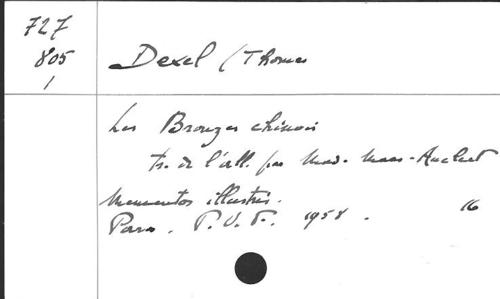 727
805
1
Dexel (Thomas
Les Bronzes chinois
tr. de l'all. par Mad. Maas-
Mementos illustrés.
Paris. P.U.F. 1958. 16